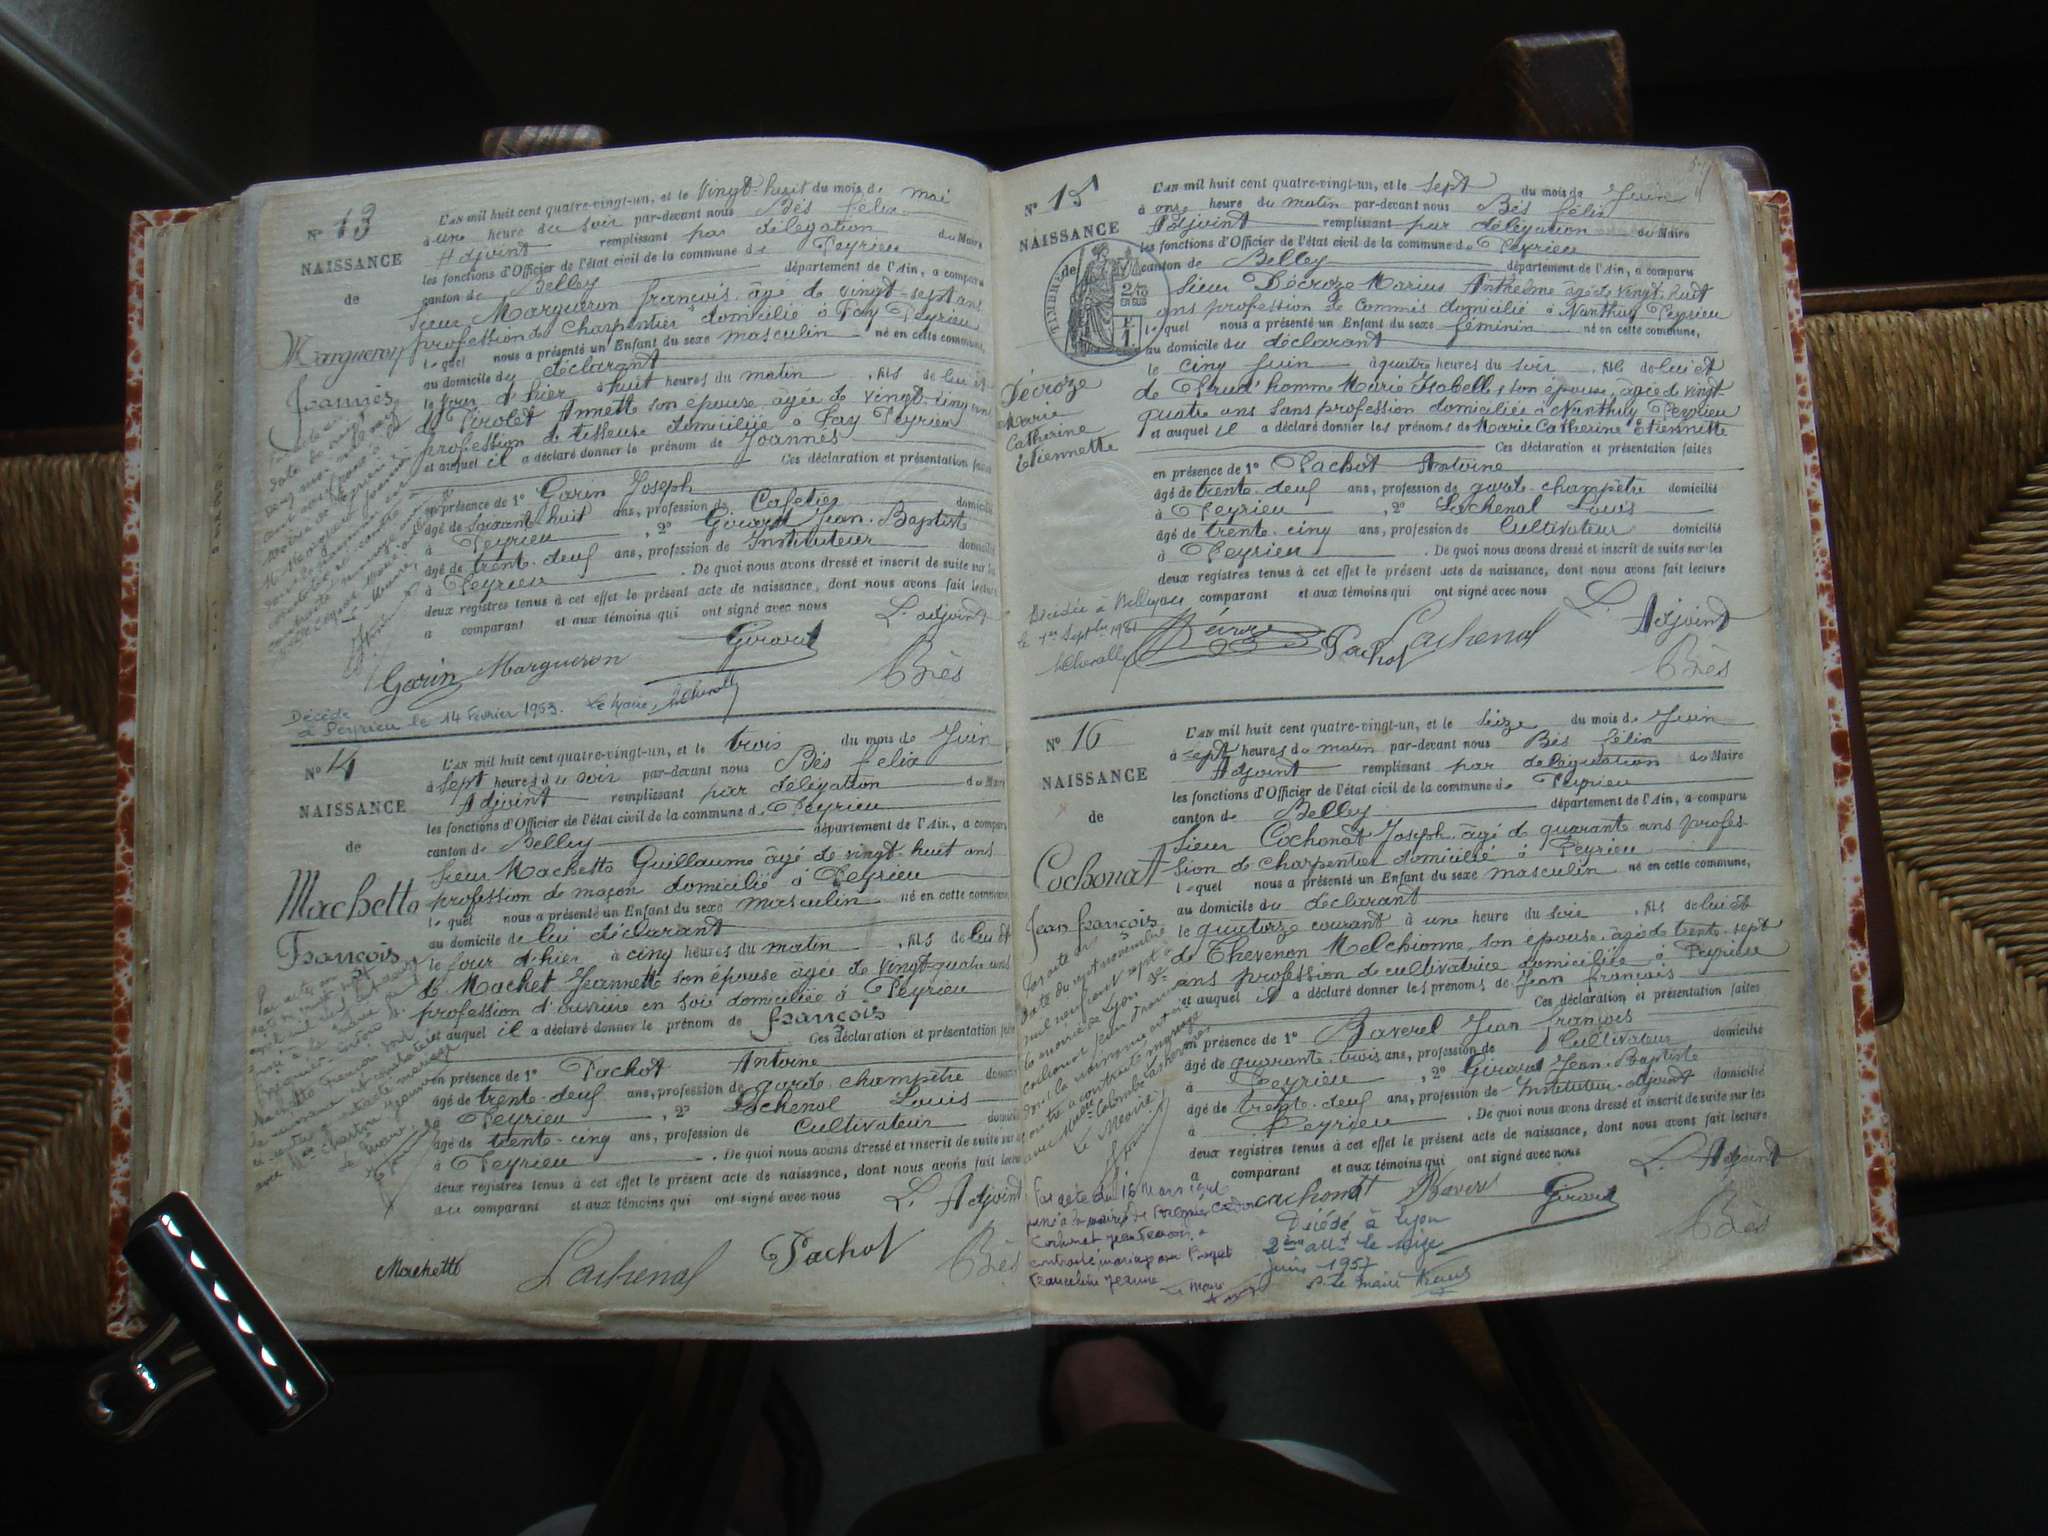 N° 13
NAISSANCE
de
Margueron
Joannès
L'AN mil huit cent quatre-vingt-un, et le Vingt-huit du mois de mai
à une heure du soir par-devant nous Bès félix
Adjoint remplissant par délégation du Maire
les fonctions d'Officier de l'état civil de la commune de Peyrieu
canton de Belley département de l'Ain, a comparu
Sieur Margueron françois, âgé de vingt-sept ans
profession de Charpentier domicilié à Fay Peyrieu
lequel nous a présenté un Enfant du sexe masculin né en cette commune,
au domicile du déclarant
le jour d'hier à huit heures du matin, fils de lui et
de Pirolet Annette son épouse agée de vingt-cinq ans
profession de tisseuse domiciliée à Fay Peyrieu
et auquel il a déclaré donner le prénom de Joannès
Ces déclaration et présentation faites
en présence de 1° Garin Joseph
âgé de soixante-huit ans, profession de Cafetier domicilié
à Peyrieu, 2° Girard Jean-Baptiste
âgé de trente-neuf ans, profession de Instituteur domicilié
à Peyrieu. De quoi nous avons dressé et inscrit de suite sur les
deux registres tenus à cet effet le présent acte de naissance, dont nous avons fait lecture
a comparant et aux témoins qui ont signé avec nous
L'adjoint
Garin Margueron Girard Bès
Décédé
à Peyrieu le 14 Février 1953. Le Maire,
N° 14
NAISSANCE
de
Machetto
François
L'AN mil huit cent quatre-vingt-un, et le trois du mois de Juin
à sept heures du soir par-devant nous Bès félix
Adjoint remplissant par délégation du Maire
les fonctions d'Officier de l'état civil de la commune de Peyrieu
canton de Belley département de l'Ain, a comparu
Sieur Machetto Guillaume âgé de vingt-huit ans
profession de maçon domicilié à Peyrieu
lequel nous a présenté un Enfant du sexe masculin né en cette commune
au domicile de lui déclarant
le jour d'hier à cinq heures du matin, fils de lui et
de Machet Jeannette son épouse âgée de vingt-quatre ans
profession d'ouvrière en soie domiciliée à Peyrieu
et auquel il a déclaré donner le prénom de françois
Ces déclaration et présentation faites
en présence de 1° Pachot Antoine
âgé de trente-neuf ans, profession de garde-champêtre domicilié
à Peyrieu, 2° Lachenal Louis
âgé de trente-cinq ans, profession de Cultivateur domicilié
à Peyrieu. De quoi nous avons dressé et inscrit de suite sur les
deux registres tenus à cet effet le présent acte de naissance, dont nous avons fait lecture
au comparant et aux témoins qui ont signé avec nous
L'Adjoint
Machetto Lachenal Pachot Bès
N° 15
NAISSANCE
de
TIMBRE
Décroze
Marie
Catherine
Etiennette
L'AN mil huit cent quatre-vingt-un, et le sept du mois de Juin
à onze heure du matin par-devant nous Bès félix
Adjoint remplissant par délégation du Maire
les fonctions d'Officier de l'état civil de la commune de Peyrieu
canton de Belley département de l'Ain, a comparu
Sieur Décroze Marius Anthelme âgé de vingt-huit
ans profession de Commis domicilié à Nanthuy Peyrieu
lequel nous a présenté un Enfant du sexe féminin né en cette commune,
au domicile du déclarant
le cinq Juin à quatre heures du soir, fils de lui et
de Prud'homme Marie Isabelle, son épouse, âgée de vingt-
quatre ans sans profession domiciliée à Nanthuy Peyrieu
et auquel il a déclaré donner les prénoms de Marie Catherine Etiennette
Ces déclaration et présentation faites
en présence de 1° Pachot Antoine
âgé de trente-neuf ans, profession de garde-champêtre domicilié
à Peyrieu, 2° Lachenal Louis
âgé de trente-cinq ans, profession de Cultivateur domicilié
à Peyrieu. De quoi nous avons dressé et inscrit de suite sur les
deux registres tenus à cet effet le présent acte de naissance, dont nous avons fait lecture
comparant et aux témoins qui ont signé avec nous
L'Adjoint
Décroze Pachot Lachenal Bès
Décédée à
le 1er Septbre 1961
N° 16
NAISSANCE
de
Cochonat
Jean françois
L'AN mil huit cent quatre-vingt-un, et le seize du mois de Juin
à sept heures du matin par-devant nous Bès félix
Adjoint remplissant par délégation du Maire
les fonctions d'Officier de l'état civil de la commune de Peyrieu
canton de Belley département de l'Ain, a comparu
Sieur Cochonat Joseph, âgé de quarante ans profes-
sion de charpentier domicilié à Peyrieu
lequel nous a présenté un Enfant du sexe masculin né en cette commune,
au domicile du déclarant
le quatorze courant à une heure du soir, fils de lui et
de Thevenon Melchionne, son épouse, âgée de trente-sept
ans profession de cultivatrice domiciliée à Peyrieu
et auquel il a déclaré donner les prénoms de Jean françois
Ces déclaration et présentation faites
en présence de 1° Baverel Jean françois
âgé de quarante-trois ans, profession de Cultivateur domicilié
à Peyrieu, 2° Girard Jean-Baptiste
âgé de trente-neuf ans, profession de Instituteur-adjoint domicilié
à Peyrieu. De quoi nous avons dressé et inscrit de suite sur les
deux registres tenus à cet effet le présent acte de naissance, dont nous avons fait lecture
a comparant et aux témoins qui ont signé avec nous
L'Adjoint
cachonat Girard Bès
Décédé à Lyon
2ème le seize
Juin 1957
le maire